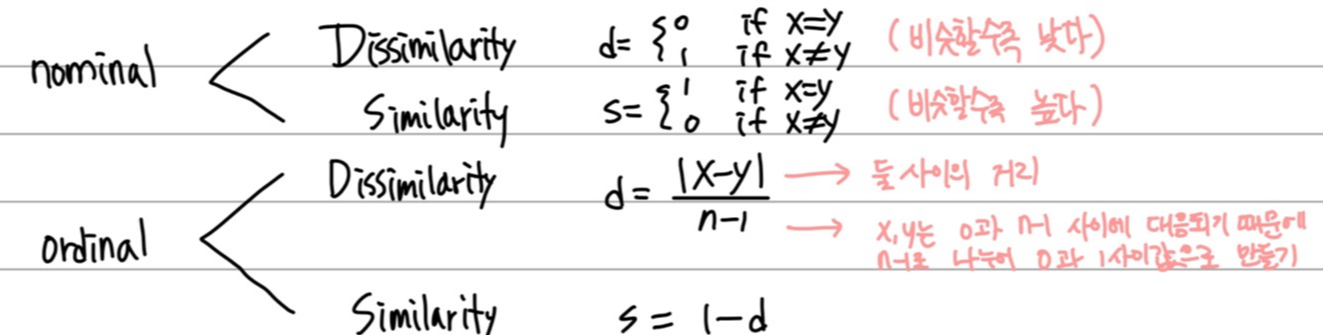 nominal
Dissimilarity d= { 0 if x=y (비슷할수록 낮다)
1 if x≠y
Similarity s= { 1 if x=y (비슷할수록 높다)
0 if x≠y
ordinal
Dissimilarity d= |x-y| / n-1 → 둘 사이의 거리
→ x,y는 0과 n-1 사이에 대응되기 때문에
n-1로 나누어 0과 1사이값으로 만들기
Similarity s = 1-d